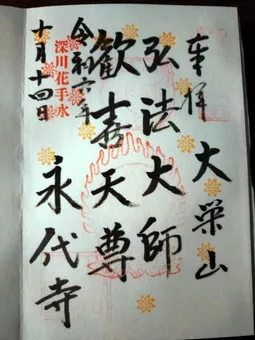 奉拝 大栄山
弘法大師
歓喜天尊
令和六年
深川花手水
十月十四日
永代寺